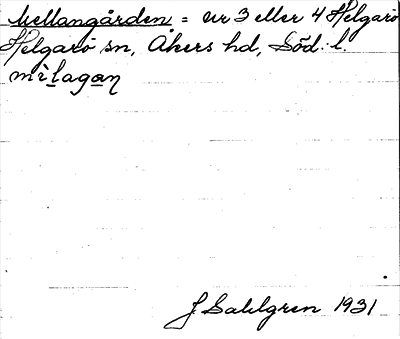 Mellangården = nr 3 eller 4 Helgarö
Helgarö sn, Åkers hd, Söd. l.
mìlagaṇ
J Sahlgren 1931